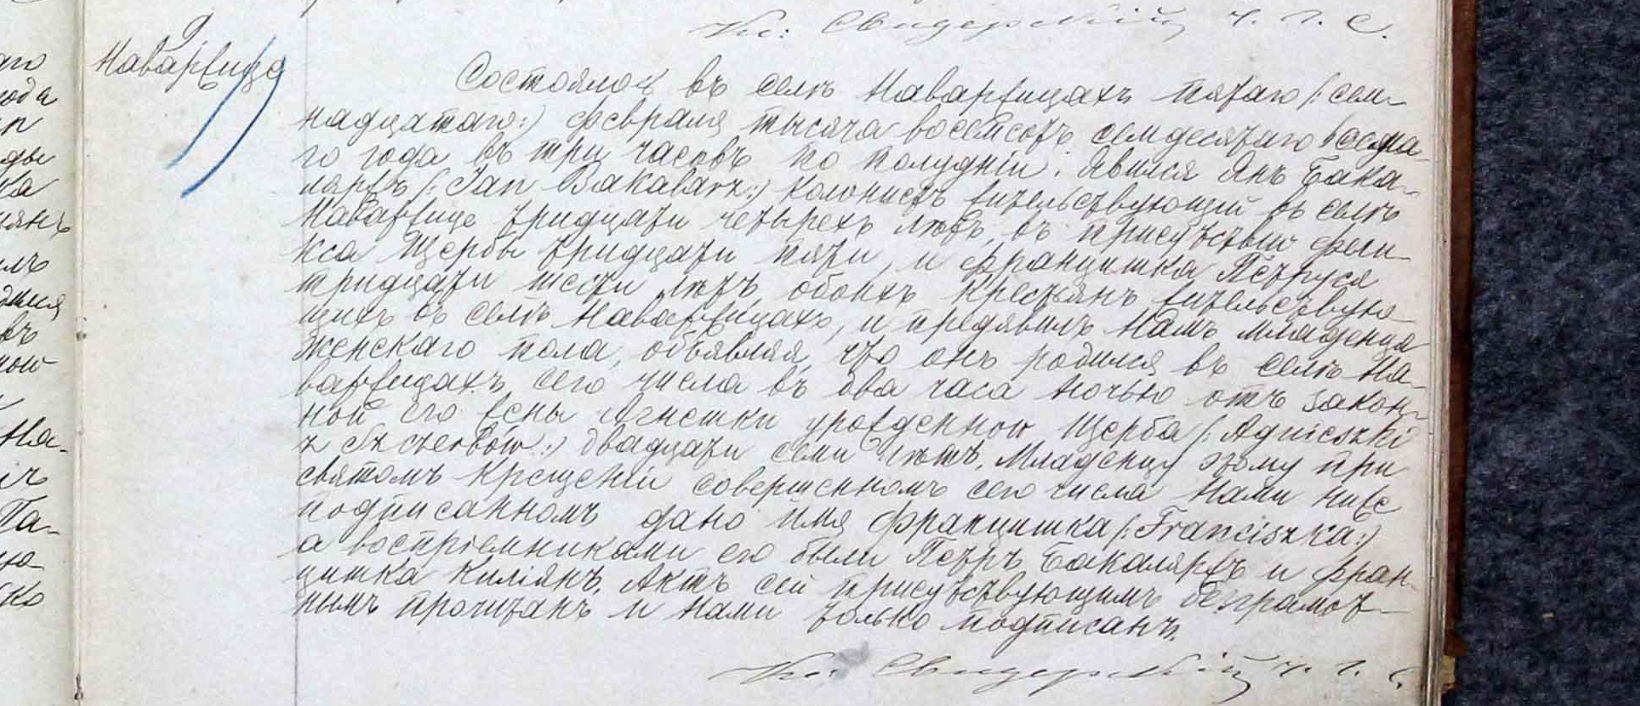 Кс: Свидерскій ч. Г. С.
9
Наваржице
Состоялось въ селѣ Наваржицахъ пятаго /: сем-
надцатаго:) февраля тысяча восемсотъ семдесятаго восма-
го года въ три часовъ по полудніи. Явился Янъ Бака-
ляржъ (: Jan Bakalarz:) колонистъ жительствующій въ селѣ
Наваржице тридцати четырехъ лѣтъ, въ присутствіи фели-
кса Щербы тридцати пяти, и францишка Петруся
тридцати шести лѣтъ, обоихъ крестьянъ жительствую-
щихъ въ селѣ Наваржицахъ, и предявилъ Намъ младенца
женскаго пола, объявляя, что онъ родился въ селѣ На-
варжицахъ, сего числа въ два часа ночью отъ закон-
ной его жены Агнешки урожденной Щерба (: Agnieszki
z Szczerbów:) двадцати семи лѣтъ. Младенцу этому при
святомъ крещеніи совершенномъ сего числа Нами ниже
подписанномъ дано имя францишка (: Franciszka:)
а воспріемниками его были Петръ Бакаляржъ и фран-
цишка Киліянъ. Актъ сей присутствующимъ безграмот-
нымъ прочитанъ и Нами только подписанъ.
Кс: Свидерскій ч. Г. С.